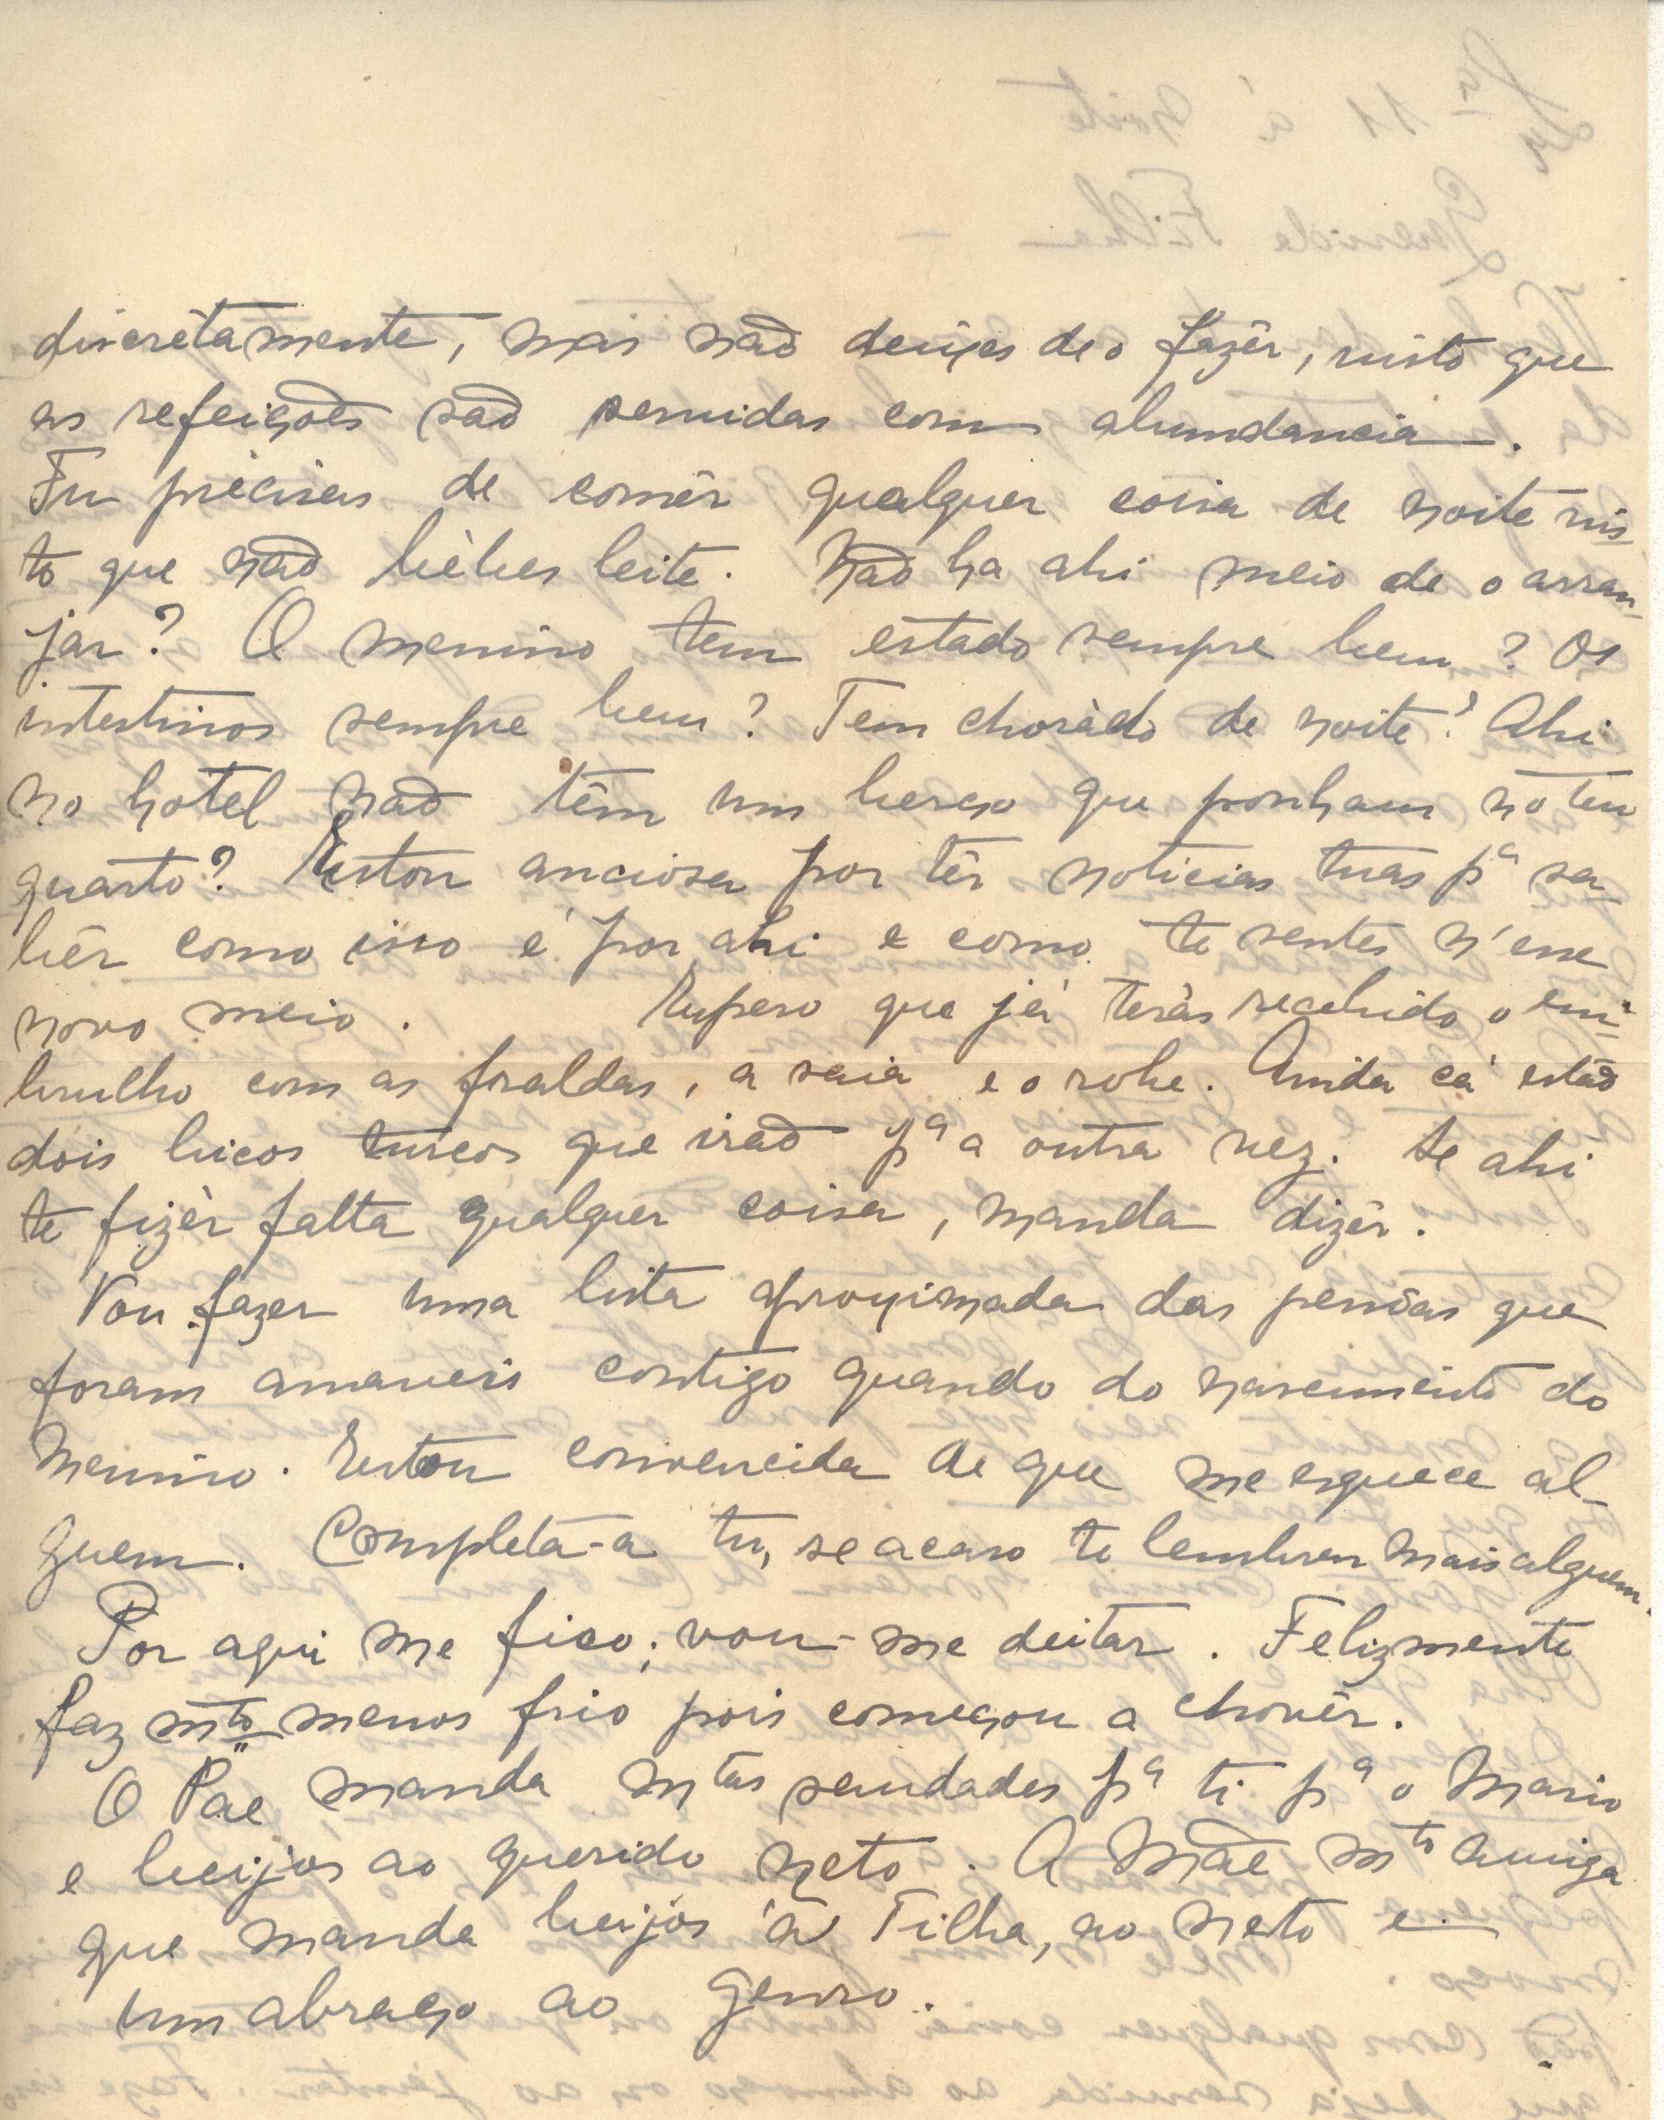 discrètamente, mas não deixes de o fazêr, visto que
as refeições são servidas com abundancia.
Tu précisas de comêr qualquer coisa de noite vis-
to que não bèbes leite. Não ha ahi meio de o arran-
jar? O menino tem estado sempre bem? Os
intestinos sempre bem? Tem choràdo de noite? Ahi
no hotel não têm um berço que ponham no teu
quarto? Estou anciosa por têr noticias tuas pª sa-
bêr como isso é por ahi e como te sentes n'esse
novo meio. Espero que já teràs recebido o em-
brulho com as fraldas, a saia e o robe. Ainda cá estão
dois bicos turcos que irão pª a outra vez. Se ahi
te fizèr falta qualquer coisa, manda dizêr.
Vou fazer uma lista aproximada das pessôas que
foram amaveis contigo quando do nascimento do
Menino. Estou convencida de que me esquece al-
guem. Completa-a tu, se acaso te lembrar mais alguem.
Por aqui me fico; vou-me deitar. Felizmente
faz mto menos frio pois começou a chovêr.
O Päe manda mtas saudades pª ti pª o Mario
e beijos ao querido neto. A Mãe mto amiga
que manda beijos à Filha, ao neto e
um abraço ao genro.